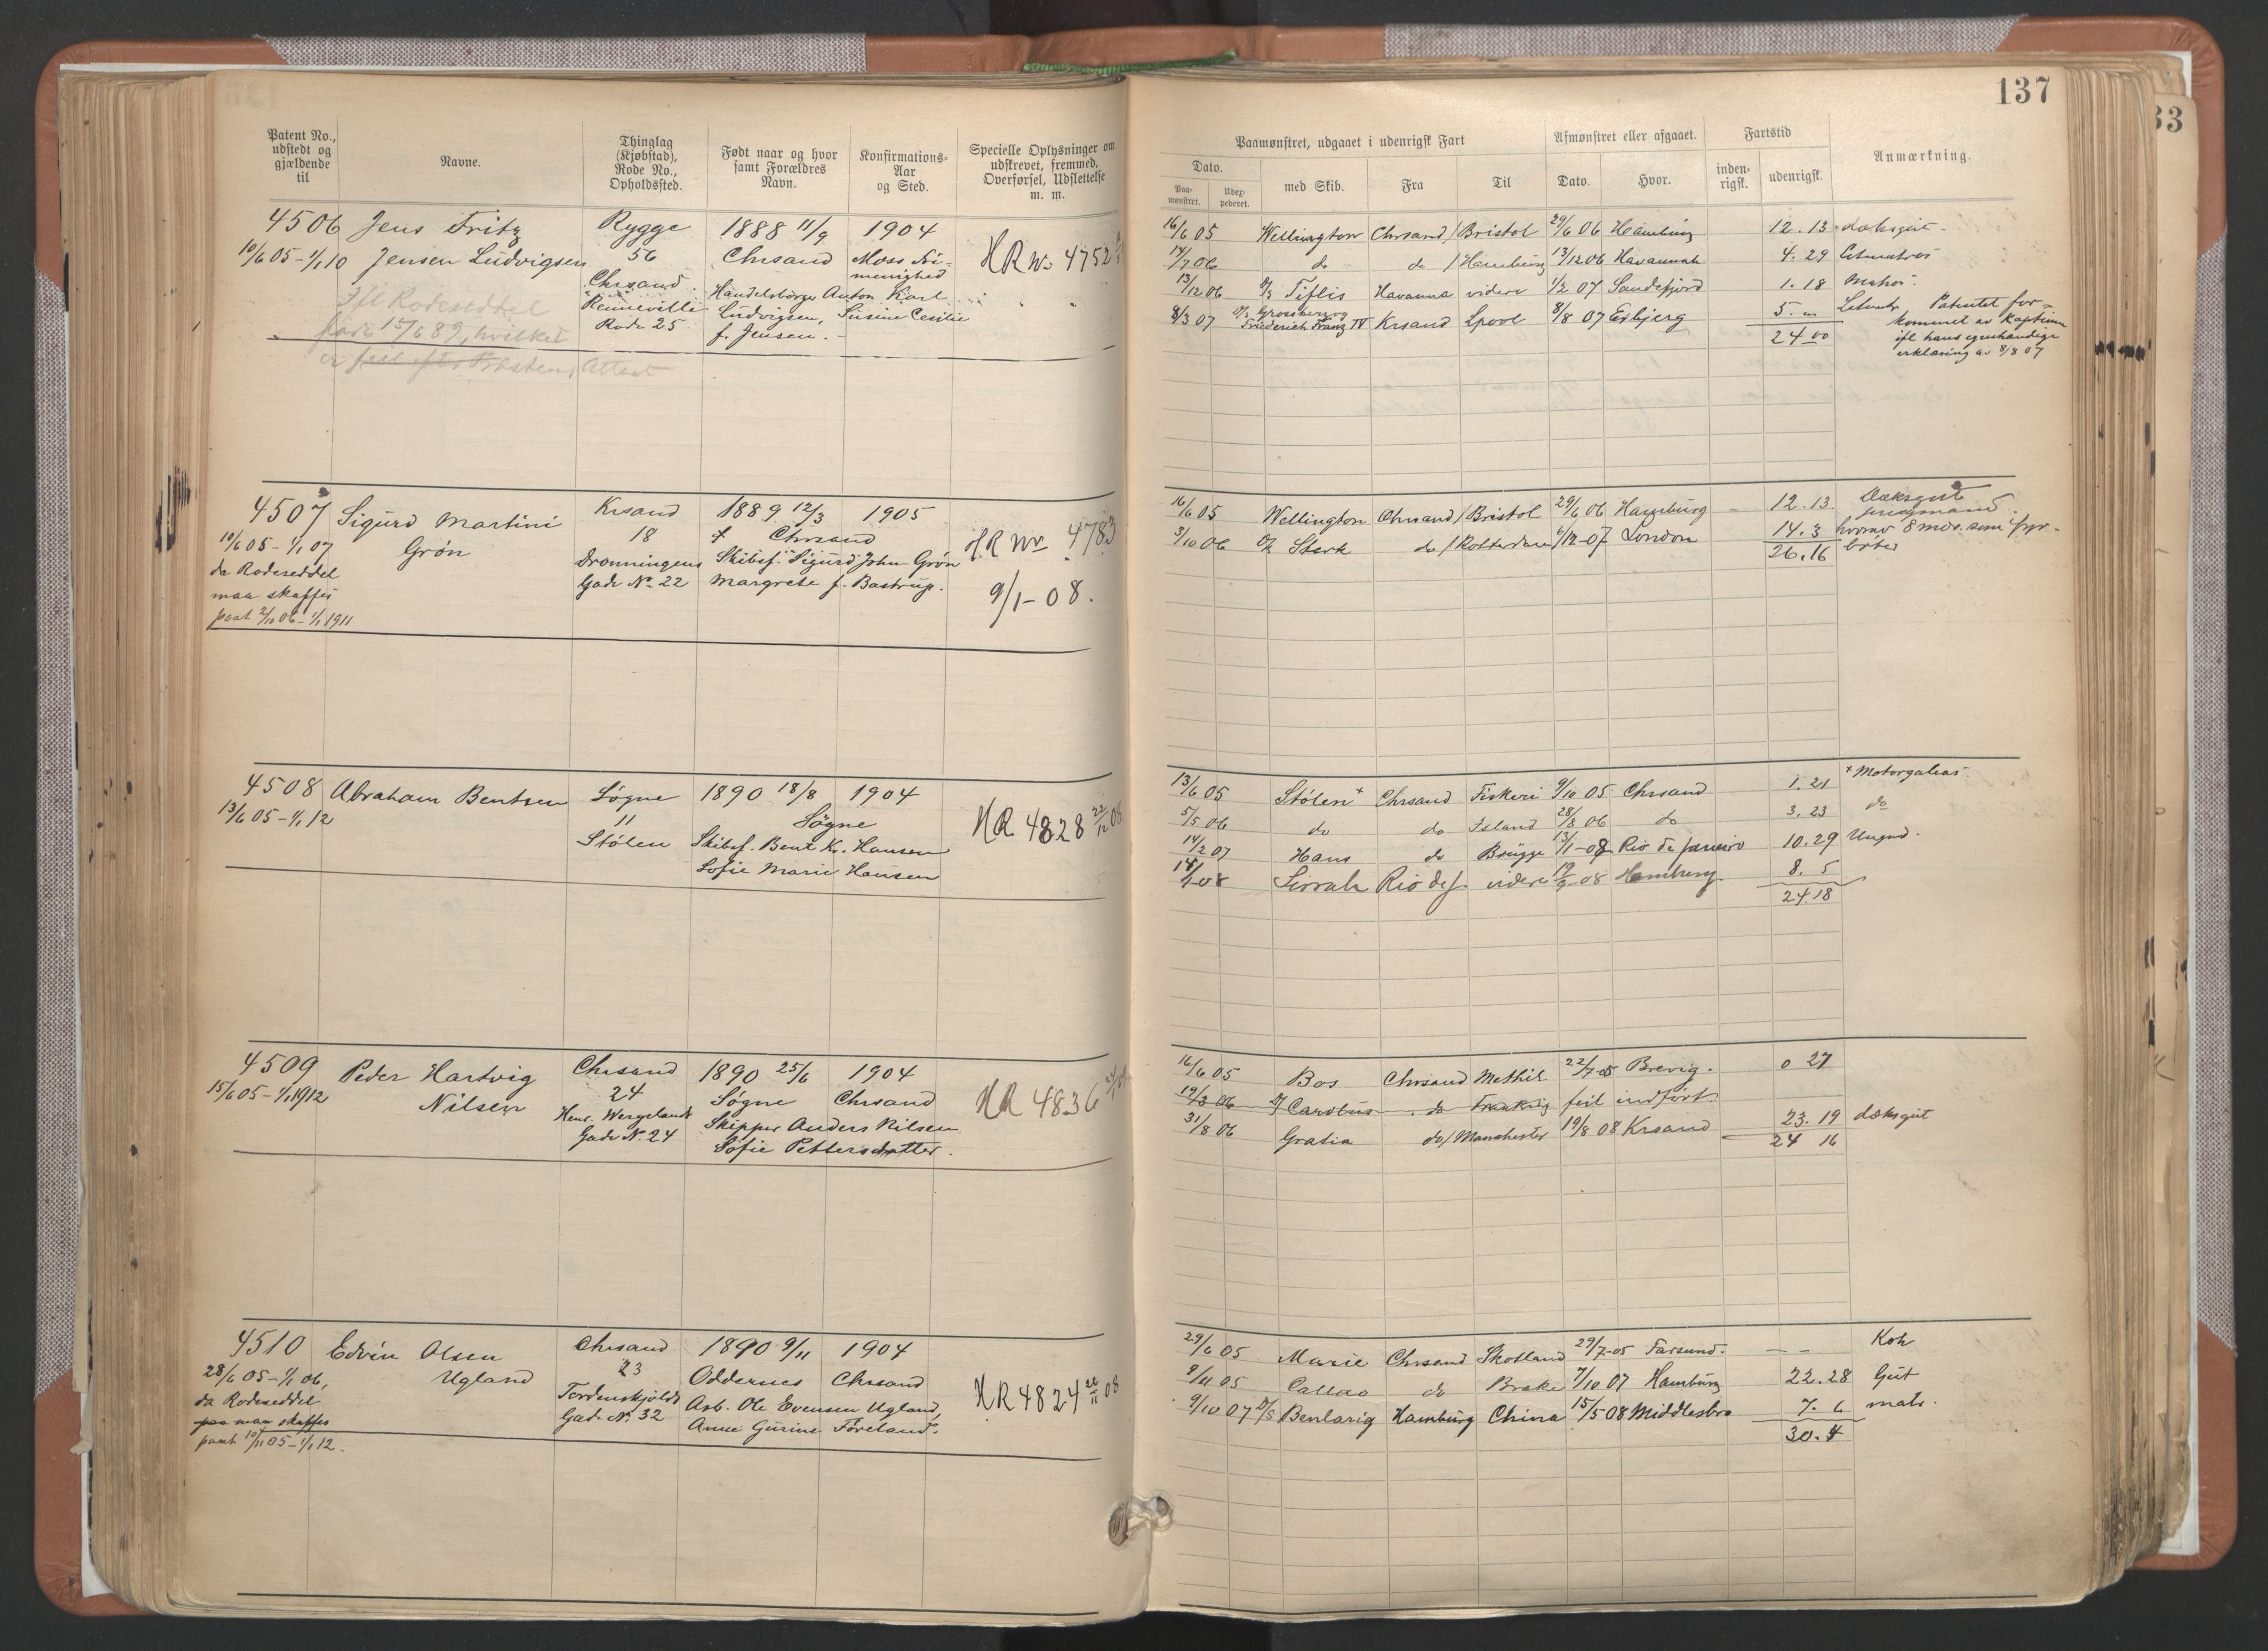 137
33
Patent No., udstedt og gjældende til
Navne.
Thinglag (Kjøbstad), Rode No., Opholdssted.
Født naar og hvor samt Forældres Navn.
Konfirmations-Aar og Sted.
Specielle Oplysninger om udskrevet, fremmed, Overførsel, Udslettelse m. m.
Paamønstret, udgaaet i udenrigsk Fart
Afmønstret eller afgaaet.
Fartstid
Anmærkning.
Dato.
Paa-mønstret.
Udex-pederet.
med Skib.
Fra
Til
Dato.
Hvor.
inden-rigsk.
udenrigsk.
4506 Jens Fritz Rygge 1888 11/9 1904
10/6 05 - 1/1 10 Jensen Ludvigsen 56 Chrsand Moss Fri-
menighed
HR No 4752
Chrsand Handelsborger Anton Karl
Renneville Ludvigsen, Susine Cesilie
Rode 25 f. Jensen.
Ifl Rodeseddel
født 15/6 89, hvilket
er feil efter Præstens Attest
16/6 05 Wellington Chrsand / Bristol 29/6 06 Hamburg 12. 13 dæksgut
17/7 06 do do / Hamburg 13/12 06 Havannah 4. 29 Letmatros
13/12 06 Tiflis Havanna videre 1/2 07 Sandefjord 1. 18 Matros
8/3 07 Grossherzog
Friederich Franz IV Krsand Lpool 8/8 07 Esbjerg 5. "
24 00
Patentet for-
kommet av Kaptein
ifl hans egenhændige
erklæring av 8/8 07
4507 Sigurd Martini Krsand 1889 12/3 1905
10/6 05 - 1/1 07 Grøn 18 Chrsand
HR No 4783
da Rodeseddel Dronningens Skibsf. Sigurd John Grøn
maa skaffes Gade No 22 Margrete f. Bastrup.
9/1-08.
paat 2/10 06 - 1/1 1911
16/6 05 Wellington Chrsand / Bristol 29/6 06 Hamburg 12. 13 Dæksgut
3/10 06 Sterk do / Rotterdam 6/12-07 London 14. 3 hvorav 8 mdr. som fyr-
26. 16 bøter
4508 Abraham Bentsen Søgne 1890 18/8 1904
13/6 05 - 1/1 12 11 Søgne
HR 4828 22/12 08
Stølen Skibsf. Bent Kr. Hansen
Sofie Marie Hansen
13/6 05 Stølen + Chrsand Fiskeri 9/10 05 Chrsand 1. 21 + Motorgaleas
5/5 06 do do Island 28/8 06 do 3. 23 do
14/2 07 Hans do Brügge 13/1-08 Rio de Janeiro 10. 29 Ungmd.
14/1-08 Sirrah Rio de J. videre 19/9-08 Hamburg 8. 5
24.18
4509 Peder Hartvig Chrsand 1890 25/6 1904
15/6 05 - 1/1 1912 Nilsen 24 Søgne Chrsand
HR 4836
Henr. Wergelands Skipper Anders Nilsen
Gade No 24 Sofie Pettersdatter.
16/6 05 Bos Chrsand Methil 22/7-05 Brevig. 0 27
12/3 06 Carobus do Frankrig feil indført.
31/8 06 Gratia do / Manchester 19/8 08 Krsand 23. 19 dæksgut
24 16
4510 Edvin Olsen Chrsand 1890 9/11 1904
28/6 05 - 1/1 06, Ugland 23 Oddernes Chrsand
HR 4824 26/11 08
da Rodeseddel Tordenskjolds Arb. Ole Evensen Ugland,
paa maa skaffes Gade No. 32 Anne Gurine Føreland.
paat 10/11 05 - 1/1 12.
29/6 05 Marie Chrsand Skotland 29/7-05 Farsund. - - Kok
9/11 05 Callao do Brake 7/10 07 Hamburg 22. 28 Gut
9/10 07 Benlarig Hamburg China 15/5 08 Middlesbro 7. 6 matr.
30. 4